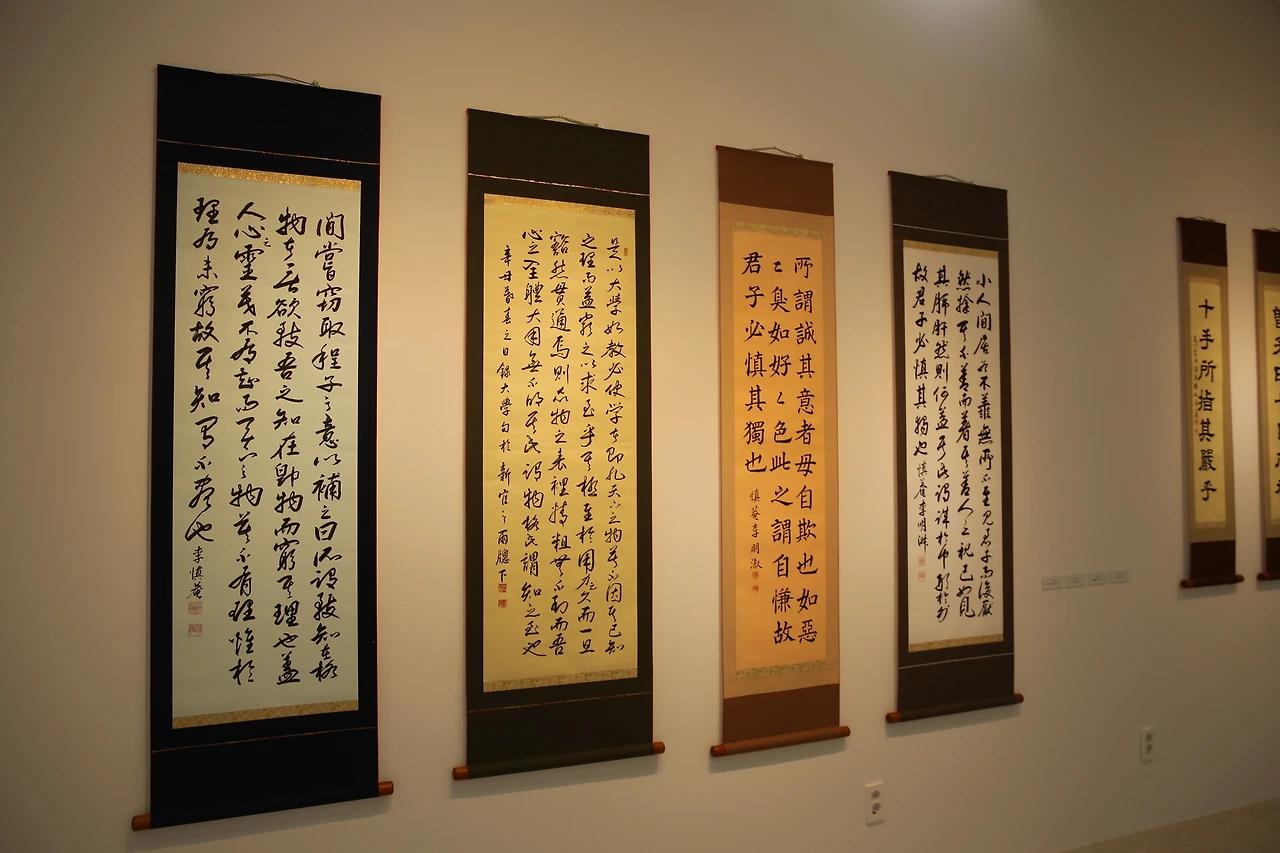 間嘗竊取程子之意以補之曰所謂致知在格
物者言欲致吾之知在卽物而窮其理也蓋
人心之靈莫不有知而天下之物莫不有理惟於
理有未窮故其知有不盡也 李愼菴
是以大學始教必使学者即凡天下之物莫不因其已知
之理而益窮之以求至乎其極至於用力之久而一旦
豁然貫通焉則衆物之表裡精粗無不到而吾
心之全體大用無不明矣此謂物格此謂知之至也
辛丑暮春之日錄大學句於新
所謂誠其意者毋自欺也如惡
〻臭如好〻色此之謂自慊故
君子必慎其獨也 慎菴李明淑
小人閒居為不善無所不至見君子而後厭
然揜其不善而著其善人之視己如見
其肺肝然則何益矣此謂誠於中形於外
故君子必慎其獨也 慎菴李明淑
十手所指其嚴乎